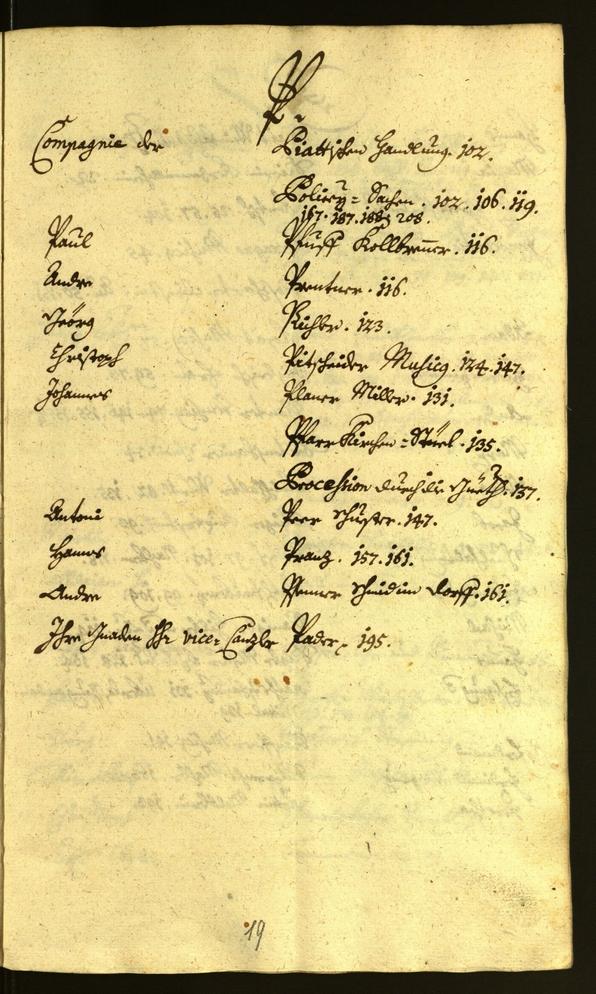 P.
Compagnie der Piattischen Handlung. 102.
Policey = Sachen. 102. 106. 119.
167. 187. 188. 208.
Paul Pfuff Kollbrenner. 116.
Andre Prentner. 116.
Jeörg Pichler. 123.
Christoph Pitscheider Musicg. 124. 147.
Johannes Planer Miller. 131.
Pfarr Kirchen = Stüel. 135.
Procession durch die Güeth. 137.
Antoni Peer Schuster. 147.
Hannes Prantz. 157. 161.
Andre Pfenner Schmid im Dorff. 161.
Ihro Gnaden Hr vice: Canzler Pader. 195.
19